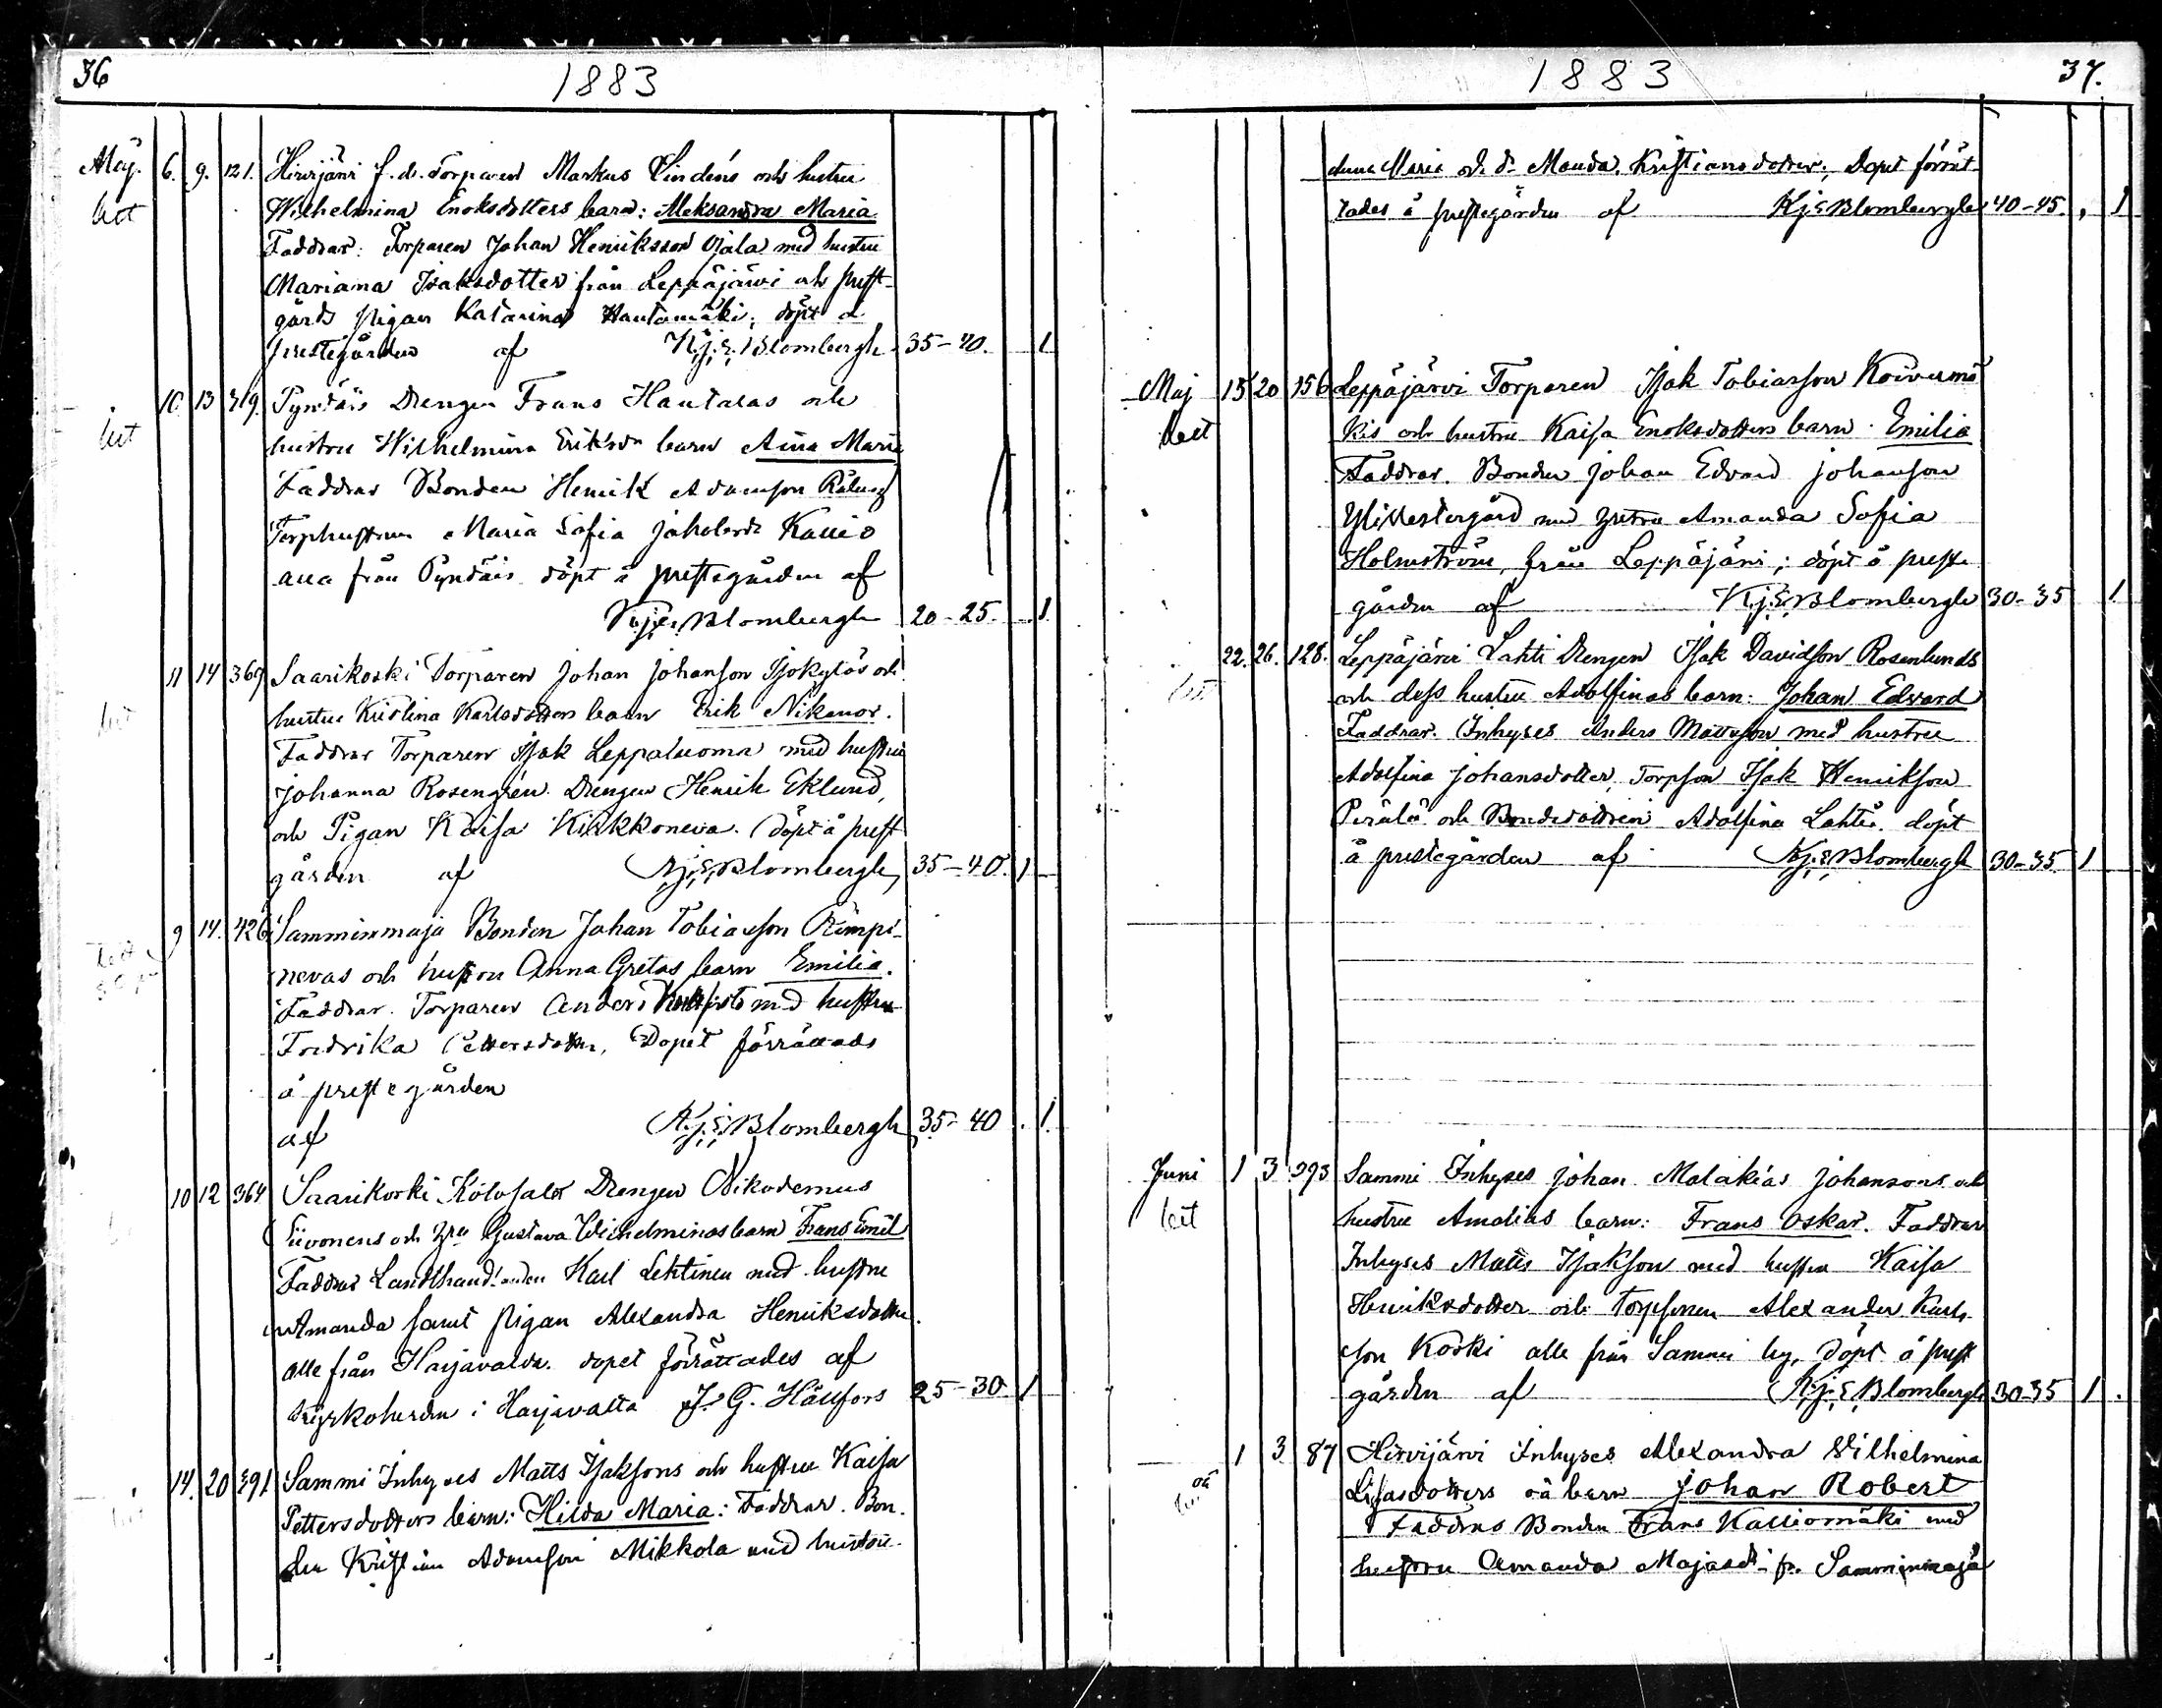 36
1883
Maj. 6. 9. 121. Hirvijärvi f. d. Torparen Markus Lindéns och hustru
Wilhelmina Enoksdotters barn: Aleksandra Maria
Faddrar: Torparen Johan Henriksson Ojala med hustru
Mariana Isaksdotter från Leppäjärvi och prest-
gårds pigan Katarina Hautamäki; döpt å
prestegården af K.j.E. Blombergh 35-40. 1
10 13 Pyntäis Drengen Frans Hautalas och
hustru Wilhelmina Eriksdr barn Aina Maria
Faddrar Bonden Henrik Adamson
Torphustrun Maria Sofia Kallio
alla från Pyntäis döpt å prestegården af
K.j.E. Blombergh 20-25. 1
11 14 367 Saarikoski Torparen Johan Johanson Isokylös och
hustru Kristina Karlsdotters barn Erik Nikanor.
Faddrar Torparen Isak Leppäluoma med hustru
Johanna Rosengrén. Drengen Henrik Eklund,
och Pigan Kaisa Kirkkoneva. Döpt å prest
gården af K.j.E. Blombergh, 35-40. 1
9 14. 426 Samminmaja Bonden Johan Tobiasson Rimpi-
nevas och hustru Anna Gretas barn Emilia.
Faddrar. Torparen Anders med hustru
Fredrika Pettersdotter, Dopet förrättads
å prestegården
af K.j.E. Blombergh 35-40 . 1.
10 12 364 Saarikoski Drengen Nikodemus
Siivonens och Gustava Wilhelminas barn Frans Emil
Faddrar Karl Lehtinen med hustru
Amanda samt pigan Alexandra Henriksdotter.
alle från Harjavalda. dopet förrättades af
kyrkoherden i Harjavalta J. G. Hällfors 25-30 1
14. 20 391 Sammi Inhyses Matts Isaksons och hustru Kaisa
Pettersdotters barn: Hilda Maria: Faddrar. Bon-
den Kristian Adamson Mikkola med hustru
1883
37.
Maria och d. Manda Kristiansdotter; Dopet förrät-
tades å prestegården af K.j.E Blombergh 40-45. 1
Maj 15 20 156 Leppäjärvi Torparen Isak Tobiasson Koivumä
kis och hustru Kaisa Enoksdotters barn. Emilia
Faddrar. Bonden Johan Edvard Johanson
Ylivestergård med hustru Amanda Sofia
Holmström, från Leppäjärvi; döpt å preste
gården af K.j.E. Blombergh 30-35 1.
22. 26. 128. Leppäjärvi Lahti Drengen Isak Davidson Rosenlunds
och dess hustru Adolfinas barn: Johan Edvard
Faddrar. Inhyses Anders Mattsson med hustru
Adolfina Johansdotter, Torpson Isak Henrikson
Perälä och Bondedottren Adolfina Lahti. döpt
å prestegården af K.j.E. Blombergh 30-35 1
Juni 1 3 393 Sammi Inhyses Johan Malakias Johansons och
hustru Amalias barn: Frans Oskar. Faddrar
Inhyses Matts Isakson med hustru Kaisa
Henriksdotter och Torpsonen Alexander Karls-
son Koski alle från Sammi by, döpt å prest
gården af K.j.E Blombergh 30-35 1 .
1 3 87 Hirvijärvi Inhyses Alexandra Vilhelmina
Lisasdotters oä barn Johan Robert
Faddras Bonden Frans Kalliomäki med
hustru Amanda Majasdr fr. Samminmaja